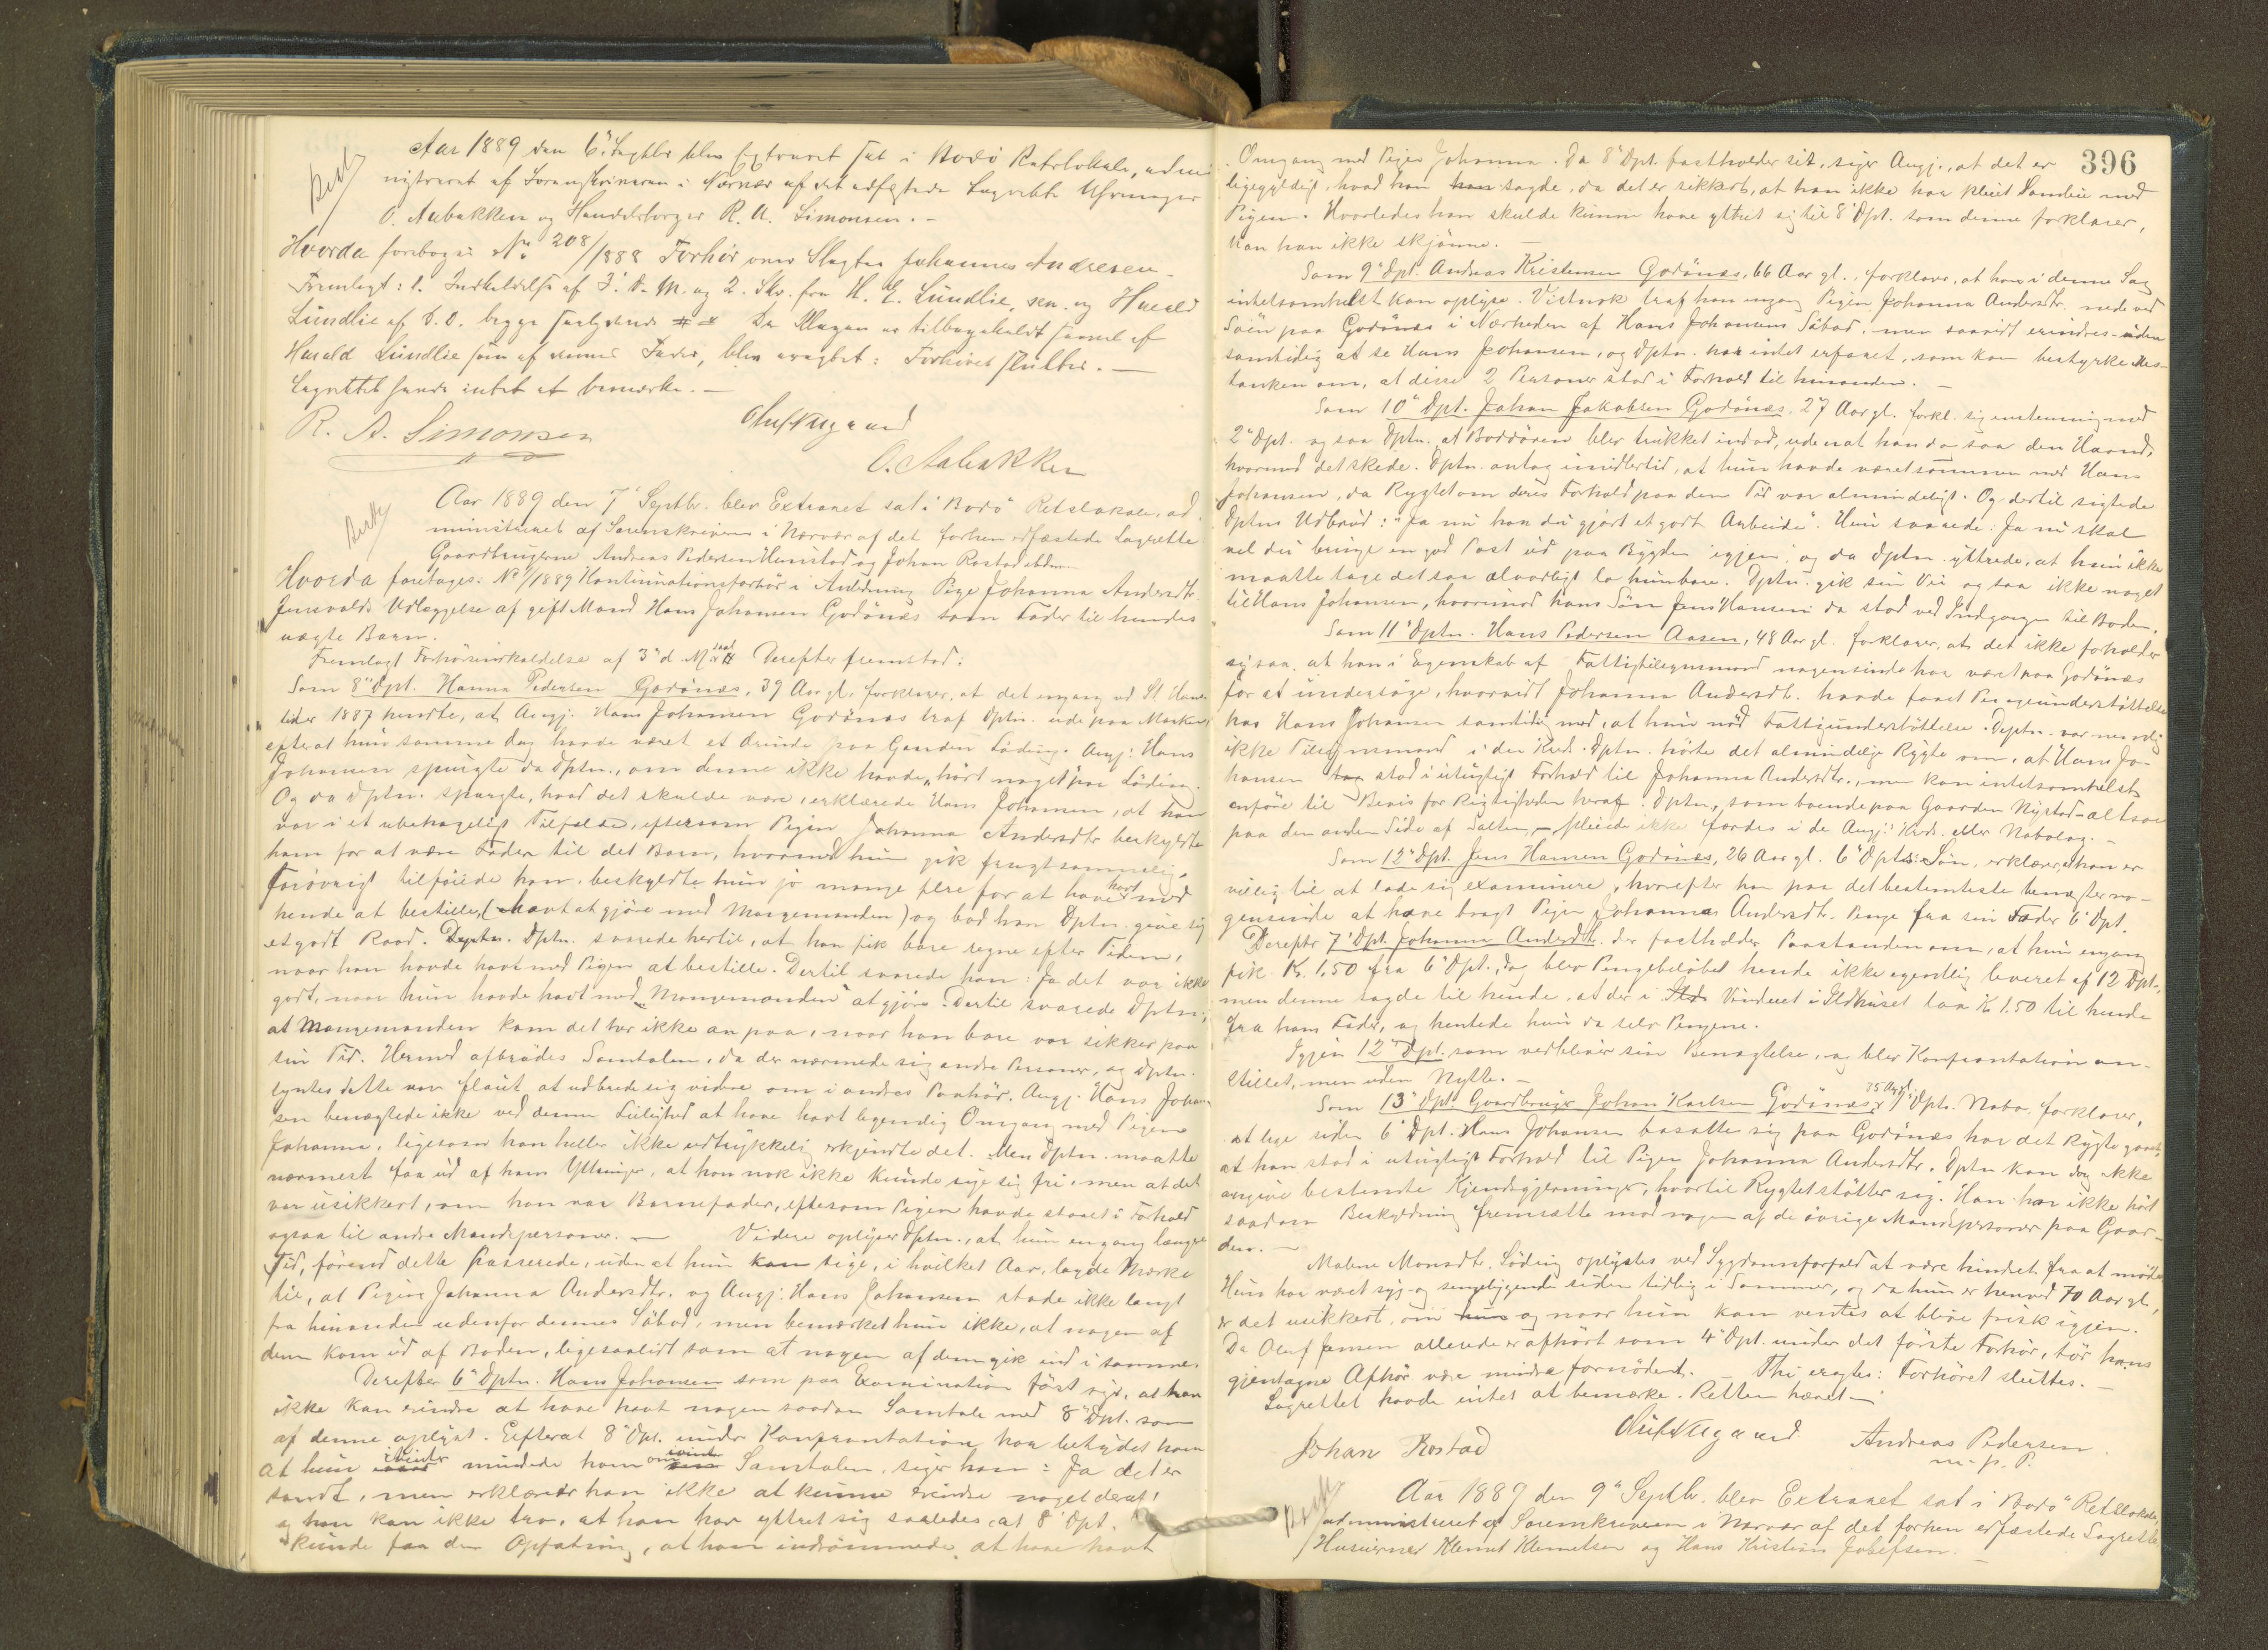 Aar 1889 den 6" Septbr blev Extraret sat i Bodö Retslokale, admi-
nistreret af Sorenskriveren i Nærvær af det edfæstede Lagrette
O. Aabakken og Handelsborger R. A. Simonsen. -
Hvorda foretoges No 208/1888 Forhör over Slagter Johannes Andresen.
Fremlagt: 1. Indkaldelse af 3' d. M. og 2. Skr. fra H. E. Lundlie sen. og Harald
Lundlie af D. D. begge Da Klagen er tilbagekaldt saavel af
Harald Lundlie som af dennes Fader, blev eragtet: Forhöret sluttes. -
Lagrettet havde intet at bemærke. -
R. A. Simonsen
O. Aabakken
Aar 1889 den 7' Septbr. blev Extraret sat i Bodö Retslokale, ad-
ministreret af Sorenskriveren i Nærvær af det forhen edfæstede Lagrette
Gaardbrugerne Andreas Pedersen Hunstad og Johan Rostad
Hvorda foretoges: No /1889 Kontinuationsforhör i Anledning Pige Johanna Andersdtr.
Jensvolds Udlæggelse af gift Mand Hans Johansen Godönæs som Fader til hendes
uægte Barn.
Fremlagt Forhörsindkaldelse af 3' d. M. Derefter fremstod:
Som 8" Dpt. Hanna Pedersen Godönæs, 39 Aar gl. forklarer, at det engang ved St Hans
tider 1887 hændte, at Angj. Hans Johansen Godönæs traf Dptn. ude paa Marken
efterat hun samme Dag havde været et Ærinde paa Gaarden Löding. Angj. Hans
Johansen spurgte da Dptn., om denne ikke havde "hört noget" paa Löding.
Og da Dptn. spurgte, hvad det skulde være, erklærede Hans Johansen, at han
var i et ubehageligt Tilfælde, eftersom Pigen Johanna Andersdtr beskyldte
ham for at være Fader til det Barn, hvormed hun gik frugtsommelig.
Forövrigt tilföiede han, beskyldte hun jo mange flere for at have havt med
hende at bestille, (havt at gjöre med Mangemanden) og bad han Dptn. give sig
et godt Raad. Dptn. Dptn. svarede hertil, at han fik bare regne efter Tiden,
naar han havde havt med Pigen at bestille. Dertil svarede han: Ja det var ikke
godt, naar hun havde havt med "Mangemanden" at gjöre. Dertil svarede Dptn.,
at Mangemanden kom det her ikke an paa, naar han bare var sikker paa
sin Tid. Hermed afbrödes Samtalen, da der nærmede sig andre Personer, og Dptn.
syntes dette var flaut at udbrede sig videre om i andres Paahör. Angj. Hans Johan-
sen benægtede ikke ved denne Leilighed at have havt legemlig Omgang med Pigen
Johanna, ligesom han heller ikke udtrykkelig erkjendte det. Men Dptn. maatte
nærmest faa ud af hans Yttringer, at han nok ikke kunde sige sig fri, men at det
var usikkert, om han var Barnefader, eftersom Pigen havde staaet i Forhold
ogsaa til andre Mandspersoner. - Videre oplyser Dptn., at hun engang længre
Tid, förend dette passerede, uden at hun kan sige, i hvilket Aar, lagde Mærke
til, at Pigen Johanna Andersdtr. og Angj. Hans Johansen stode ikke langt
fra hinanden udenfor dennes Söbod, men bemærket hun ikke, at nogen af
dem kom ud af Boden, ligesaalidt som at nogen af dem gik ind i samme.
Derefter 6" Dptn. Hans Johansen som paa Examination först siger, at han
ikke kan erindre at have havt nogen saadan Samtale med 8" Dpt. som
af denne oplyst. Efterat 8" Dpt. under Konfrontation har betydet ham
at hun ivinter mindede ham om Samtalen, siger han: Ja det er
sandt, men erklærer han ikke at kunne erindre noget deraf,
og han kan ikke tro, at han har yttret sig saaledes, at 8" Dpt.
kunde faa den Opfatning, at han indrömmede at have havt
396
Omgang med Pigen Johanna. Da 8" Dpt. fastholder sit, siger Angj., at det er
ligegyldigt, hvad han han sagde, da det er sikkert, at han ikke har pleiet Samleie med
Pigen. Hvorledes han skulde kunne have yttret sig til 8" Dpt. som denne forklarer,
kan han ikke skjönne. -
Som 9" Dpt. Andreas Kristensen Godönæs, 66 Aar gl., forklarer, at han i denne Sag
intetsomhelst kan oplyse. Vistnok traf han engang Pigen Johanna Andersdtr. nede ved
Söen paa Godönæs i Nærheden af Hans Johansens Söbod, men saavidt erindres uden
samtidig at se Hans Johansen, og Dptn. har intet erfaret, som kan bestyrke Mis-
tanken om, at disse 2 Personer stod i Forhold til hinanden. -
Som 10" Dpt. Johan Jakobsen Godönæs, 27 Aar gl. forkl. sig enstemmig med
2" Dpt. og saa Dptn. at Boddören blev trukket indad, uden at han da saa den Haand,
hvormed det skede. Dptn. antog imidlertid, at hun havde været sammen med Hans
Johansen, da Rygtet om deres Forhold paa den Tid var almindeligt. Og dertil sigtede
Dptns Udbrud: "Ja nu har du gjort et godt Arbeide". Hun svarede: Ja nu skal
vel du bringe en god Post ud paa Bygden igjen, og da Dptn. yttrede, at hun ikke
maatte tage det saa alvorligt lo hun bare. Dptn. gik sin Vei og saa ikke noget
til Hans Johansen, hvorimod hans Sön Jens Hansen da stod ved Indgangen til Boden.
Som 11" Dptn. Hans Pedersen Aasen, 48 Aar gl. forklarer, at det ikke forholder
sig saa, at han i Egenskab af Fattigtilsynsmand nogensinde har været paa Godönæs
for at undersöge, hvorvidt Johanna Andersdtr. havde faaet Pengeunderstöttelse
hos Hans Johansen samtidig med, at hun nöd Fattigunderstöttelse. Dptn. var nemlig
ikke Tilsynsmand i den Kreds. Dptn. hörte det almindelige Rygte om, at Hans Jo-
hansen stod i utugtigt Forhold til Johanna Andersdtr., men kan intetsomhelst
anföre til Bevis for Rigtigheden heraf. Dptn., som boende paa Gaarden Nystad - altsaa
paa den anden Side af Salten, - pleiede ikke færdes i de Angj.' Kreds eller Nabolag. -
Som 12" Dpt. Jens Hansen Godönæs, 26 Aar gl. 6" Dpts. Sön, erklærer, at han er
villig til at lade sig examinere, hvorefter han paa det bestemteste benægter no-
gensinde at have bragt Pigen Johanna Andersdtr. Penge fra sin Fader 6" Dpt.
Derefter 7" Dpt. Johanna Andersdtr. der fastholder Paastanden om, at hun engang
fik Kr. 1.50 fra 6" Dpt., dog blev Pengebelöbet hende ikke egentlig leveret af 12 Dpt.,
men denne sagde til hende, at der i Vinduet i Ildhuset laa K 1.50 til hende
fra hans Fader, og hentede hun da selv Pengene.
Igjen 12" Dpt. som vedbliver sin Benægtelse, og blev Konfrontation an-
stillet, men uden Nytte. -
Som 13" Dpt. Gaardbruger Johan Karlsen Godönæs, 35 Aar gl. Dpts. Nabo, forklarer,
at lige siden 6" Dpt. Hans Johansen bosatte sig paa Godönæs har det Rygte gaaet,
at han stod i utugtigt Forhold til Pigen Johanna Andersdtr. Dptn kan dog ikke
angive bestemte Kjendsgjerninger, hvortil Rygtet stötter sig. Han har ikke hört
saadan Beskyldning fremsatte mod nogen af de övrige Mandspersoner paa Gaar-
den. -
Malene Monsdtr. Löding oplystes ved Sygdomsforfald at være hindret fra at möde.
Hun har været syg og sengeliggende siden tidlig i Sommer, og da hun er henved 70 Aar gl,
er det usikkert, om hun og naar hun kan ventes at blive frisk igjen.
Da Oluf Jensen allerede er afhört som 4" Dpt. under det förste Forhör, tör hans
gjentagne Afhör være mindre fornödent. - Thi eragtes: Forhöret sluttes. -
Lagrettet havde intet at bemærke. Retten hævet -
Johan Rostad
Andreas Pedersen
m. p. P.
Aar 1889 den 9" Septbr. blev Extraret sat i Bodö Retslokale,
administreret af Sorenskriveren i Nærvær af det forhen edfæstede Lagrette
Husværner Klemet Klemetsen og Hans Kristian Josefsen. -